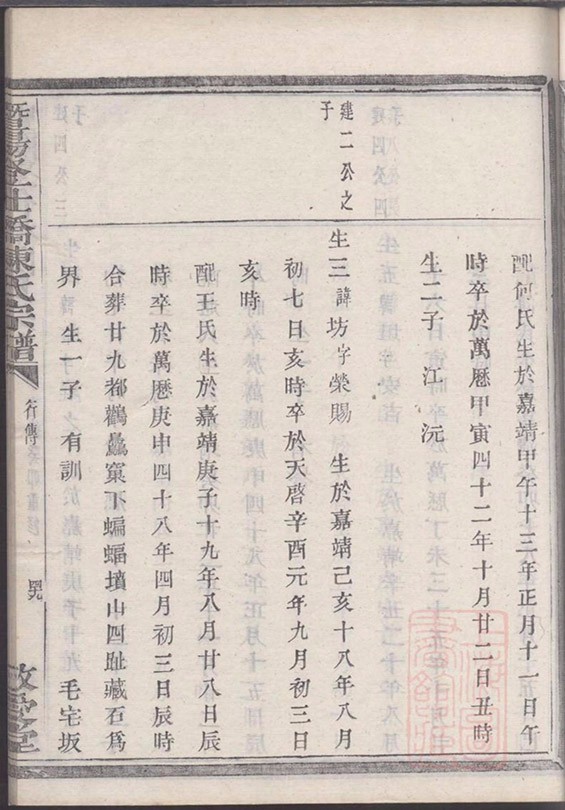 配何氏生於嘉靖甲午十三年正月十一日午
時卒於萬厯甲寅四十二年十月廿二日丑時
生二子 江 沅
建二公之
子
生三諱坊字榮賜 生於嘉靖己亥十八年八月
初七日亥時卒於天啓辛酉元年九月初三日
亥時
配王氏生於嘉靖庚子十九年八月廿八日辰
時卒於萬厯庚申四十八年四月初三日辰時
合葬廿九都鸛鱻窠下蝙蝠墳山四趾藏石爲
界 生一子 有訓 毛宅坂
暨陽 仕橋陳氏宗譜
行傳